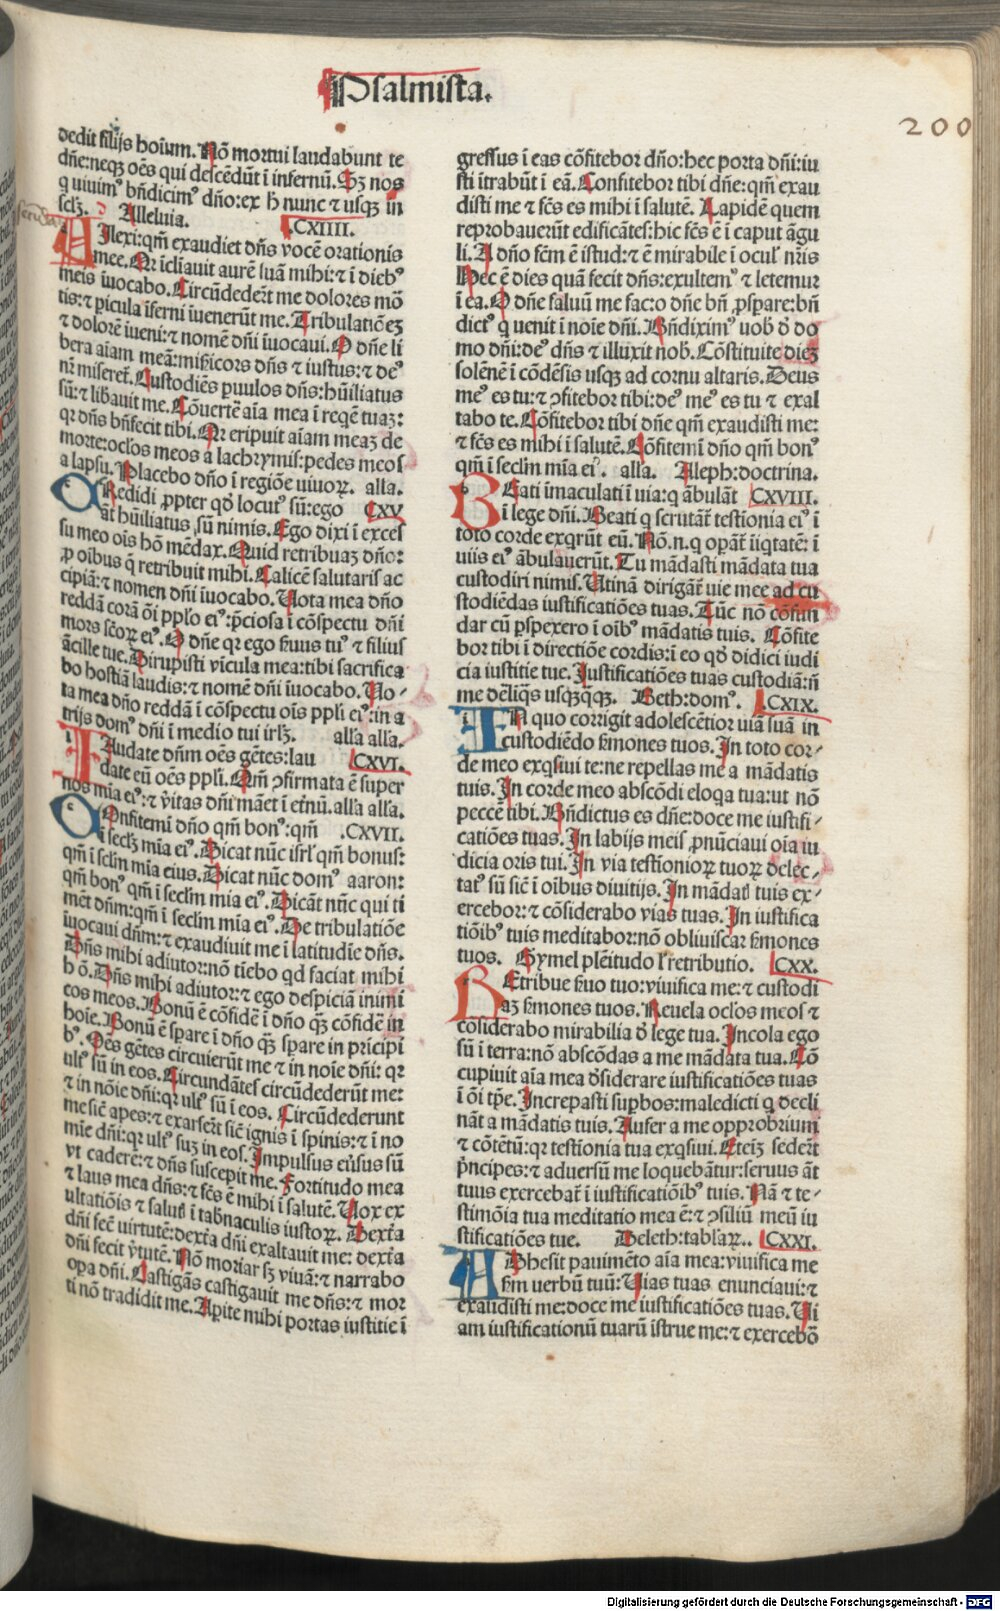 Psalmista.
200
dedit filijs hoīum. Nō mortui laudabunt te
dn̄e: neqꝫ oēs qui descēdūt ī infernū. Sꝫ nos
q viuimꝰ bn̄dicimꝰ dn̄o: ex h̄ nunc ⁊ usqꝫ in
sclꝫ. Alleluia. CXIIII.
DIlexi: qm̄ exaudiet dn̄s vocē orationis
mee. Qr īcliauit aurē suā mihi: ⁊ ī diebꝰ
meis īuocabo. Circūdedert̄ me dolores mō
tis: ⁊ picula īferni īuenerūt me. Tribulatiōeꝫ
⁊ dolorē īueni: ⁊ nomē dn̄i īuocaui. O dn̄e li
bera aīam meā: miẜicors dn̄s ⁊ iustus: ⁊ deꝰ
nr̄ miseret̄. Custodiēs puulos dn̄s: hūiliatus
sū: ⁊ libauit me. Cōuertē aīa mea ī reqē tuaꝫ:
qr dn̄s bn̄fecit tibi. Qr eripuit aīam meaꝫ de
morte: oclos meos a lachrymis: pedes meos
a lapsu. Placebo dn̄o ī regiōe viuoꝝ. alla.
CRedidi ꝓpter qd̓ locutꝰ sū: ego CXV
āt hūiliatus sū nimis. Ego dixi ī exces
su meo oīs hō mēdax. Quid retribuaꝫ dn̄o:
ꝓ oībus q̄ retribuit mihi. Calicē salutaris ac
cipiā: ⁊ nomen dn̄i īuocabo. Vota mea dn̄o
reddā corā ōi pplo eiꝰ: p̄ciosa ī cōspectu dn̄i
mors sc̄oꝝ eiꝰ. O dn̄e qr ego ẜuus tuꝰ ⁊ filius
ācille tue. Dirupisti vīcula mea: tibi sacrifica
bo hostiā laudis: ⁊ nomē dn̄i īuocabo. Vo⸗
ta mea dn̄o reddā ī cōspectu oīs ppli eiꝰ: in a
trijs domꝰ dn̄i ī medio tui irlꝫ. alla alla.
LAudate dn̄m oēs gētes: lau CXVI.
date eū oēs ppli. Qm̄ ꝯfirmata ē super
nos mīa eiꝰ: ⁊ v̓itas dn̄i māet ī et̓nū. alla alla.
COnfitemī dn̄o qm̄ bonꝰ: qm̄ .CXVII.
ī seclꝫ mīa eiꝰ. Dicat nūc isrl̓ qm̄ bonus:
qm̄ ī sclm̄ mīa eius. Dicat nūc domꝰ aaron:
qm̄ bonꝰ qm̄ ī seclm̄ mīa eiꝰ. Dicāt nūc qui ti
mēt dn̄m: qm̄ ī seclm̄ mīa eiꝰ. De tribulatiōe
īuocaui dn̄m: ⁊ exaudiuit me ī latitudīe dn̄s.
Dn̄s mihi adiutor: nō tiebo qd faciat mihi
hō. Dn̄s mihi adiutor: ⁊ ego despiciā inimi
cos meos. Bonū ē cōfidē ī dn̄o qꝫ̄ cōfidē in
hoīe. Bonū ē sꝑare ī dn̄o qꝫ̄ sꝑare in prīcipi
bꝰ. Oēs gētes circuierūt me ⁊ in noīe dn̄i: qr
ultꝰ sū in eos. Circundātes circūdederūt me:
⁊ in nōie dn̄i: qr ultꝰ sū ī eos. Circūdederunt
me sic̄ apes: ⁊ exarsert̄ sic̄ ignis ī spinis: ⁊ ī no
mīe dn̄i: qr ultꝰ suꝫ in eos. Impulsus eu̓sus sū
vt caderē: ⁊ dn̄s suscepit me. Fortitudo mea
⁊ laus mea dn̄s: ⁊ fc̄s ē mihi ī salutē. Vox ex
ultatiōis ⁊ salut̄ ī tabnaculis iustoꝝ. Dext̓a
dn̄i fec̄ virtutē: dext̓a dn̄i exaltauit me: dext̓a
dn̄i fecit v̓tutē. Nō moriar sꝫ viuā: ⁊ narrabo
opa dn̄i. Castigās castigauit me dn̄s: ⁊ mor
ti nō tradidit me. Apite mihi portas iustitie ī
gressus ī eas cōfitebor dn̄o: hec porta dn̄i: iu
sti ītrabūt ī eā. Confitebor tibi dn̄e: qm̄ exau
disti me ⁊ fc̄s es mihi ī salutē. Lapidē quem
reprobauerūt edificātes: hic fc̄s ē ī caput āgu
li. A dn̄o fcm̄ ē istud: ⁊ ē mirabile ī ocul̓ nr̄is
Hec ē dies quā fecit dn̄s: exultemꝰ ⁊ letemur
ī ea. O dn̄e saluū me fac: o dn̄e bn̄ ꝓspare: bn̄
dictꝰ q venit ī noīe dn̄i. Bn̄diximꝰ uob̓ d̓ do
mo dn̄i: deꝰ dn̄s ⁊ illuxit nob̓. Cōstituite dieꝫ
solēnē ī cōdēsis usqꝫ ad cornu altaris. Deus
meꝰ es tu: ⁊ ꝯfitebor tibi: deꝰ meꝰ es tu ⁊ exal
tabo te. Cōfitebor tibi dn̄e qm̄ exaudisti me:
⁊ fc̄s es mihi ī salutē. Cōfitemī dn̄o qm̄ bonꝰ
qm̄ ī seclm̄ mīa eiꝰ. alla. Aleph: doctrina.
BEati īmaculati ī uia: q ābulāt CXVIII.
ī lege dn̄i. Beati q scrutāt̄ testīonia eiꝰ ī
toto corde exqrūt eū. Nō. n. q opāt̄ īiqtatē: ī
uiis eiꝰ ābulauerūt. Tu mādasti mādata tua
custodiri nimis. Vtinā dirigāt̄ uie mee ad cu
stodiēdas iustificatiōes tuas. Tūc nō cōfun
dar cū ꝑspexero ī oībꝰ mādatis tuis. Cōfite
bor tibi ī directiōe cordis: ī eo qd̓ didici iudi
cia iustitie tue. Iustificatiōes tuas custodiā: n̄
me delīqs usqꝫqqꝫ. Beth: domꝰ. CXIX.
IN quo corrigit adolescētior uiā suā in
custodiēdo ẜmones tuos. In toto cor⸗
de meo exqsiui te: ne repellas me a mādatis
tuis. In corde meo abscōdi eloqa tua: ut nō
peccē tibi. Bn̄dictus es dn̄e: doce me iustifi⸗
catiōes tuas. In labijs meis ꝓnūciaui oīa iu
dicia oris tui. In via testīonioꝝ tuoꝝ delec⸗
tatꝰ sū sic̄ ī oībus diuitijs. In mādat̄ tuis ex⸗
ercebor: ⁊ cōsiderabo vias tuas. In iustifica
tiōibꝰ tuis meditabor: nō obliuiscar ẜmones
tuos. Gymel plēitudo l̓ retributio. CXX.
REtribue ẜuo tuo: viuifica me: ⁊ custodi
aꝫ ẜmones tuos. Reuela oclos meos ⁊
cōsiderabo mirabilia d̓ lege tua. Incola ego
sū ī terra: nō abscōdas a me mādata tua. Cō
cupiuit aīa mea d̓siderare iustificatiōes tuas
ī ōi tp̄e. Increpasti supbos: maledicti q decli
nāt a mādatis tuis. Aufer a me opprobrium
⁊ cōtētū: qr testīonia tua exqsiui. Eteīꝫ sedert̄
p̓ncipes: ⁊ aduersū me loquebātur: seruus āt
tuus exercebat̄ ī iustificatiōibꝰ tuis. Nā ⁊ te⸗
stimōia tua meditatio mea ē: ⁊ ꝯsiliū meū iu
stificatiōes tue. Deleth: tablaꝝ.. CXXI.
ADhesit pauimēto aīa mea: viuifica me
ẜm verbū tuū: Vias tuas enunciaui: ⁊
exaudisti me: doce me iustificatiōes tuas. Vi
am iustificationū tuarū īstrue me: ⁊ exercebō
Digitalisierung gefördert durch die Deutsche Forschungsgemeinschaft - DFG